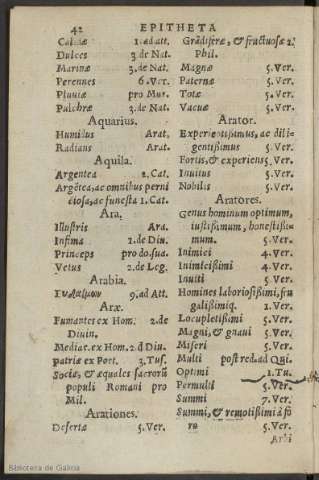 42 EPITHETA
Calidæ 1. ad att.
Dulces 3. de Nat.
Marinæ 3. de Nat.
Perennes 6. Ver.
Pluuiæ pro Mur.
Pulchræ 3. de Nat.
Aquarius.
Humidus Arat.
Radians Arat.
Aquila.
Argentea 2. Cat.
Argẽtea, ac omnibus perni
ciosa, ac funesta 1. Cat.
Ara.
Illustris Ara.
Infima 2. de Diu.
Princeps pro do. sua.
Vetus 2. de Leg.
Arabia.
9. ad Att.
Aræ.
Fumantes ex Hom. 2. de
Diuin.
Mediæ ex Hom. 2. d Diu.
patriæ ex Poet. 3. Tus.
Sociæ, & æquales sacrorũ
populi Romani pro
Mil.
Arationes.
Desertæ 5. Ver.
Grãdiferæ, & fructuosæ 2.
Phil.
Magnæ 5. Ver.
Paternæ 5. Ver.
Totæ 5. Ver.
Vacuæ 5. Ver.
Arator.
Experientißimus, ac dili
gentißimus 5. Ver.
Fortis, & experiens 5. Ver.
Inuitus 5. Ver.
Nobilis 5. Ver.
Aratores.
Genus hominum optimum,
iustißimum, honestißi-
mum. 5. Ver.
Inimici 4. Ver.
Inimicißimi 4. Ver.
Inuiti 5. Ver.
Homines laboriosißimi, fru
galißimiq. 1. Ver.
Locupletißimi 5. Ver.
Magni, & gnaui 5. Ver.
Miseri 5. Ver.
Multi post red. ad Qui.
Optimi 1. Tu.
Permulti 5. Ver.
Summi 7. Ver.
Summi, & remotißimi à fo
ro 5. Ver.
Biblioteca de Galicia